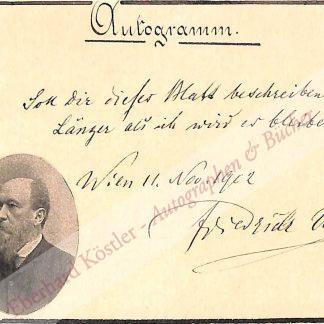 Autogramm.
Soll Dir dieses Blatt beschreiben
Länger als ich wird es bleibe
Wien 11. Nov. 1902
Friedrich
Eberhard Köstler - Autographen & Bücher